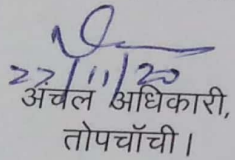 27/11/20
अंचल अधिकारी,
तोपचाँची।